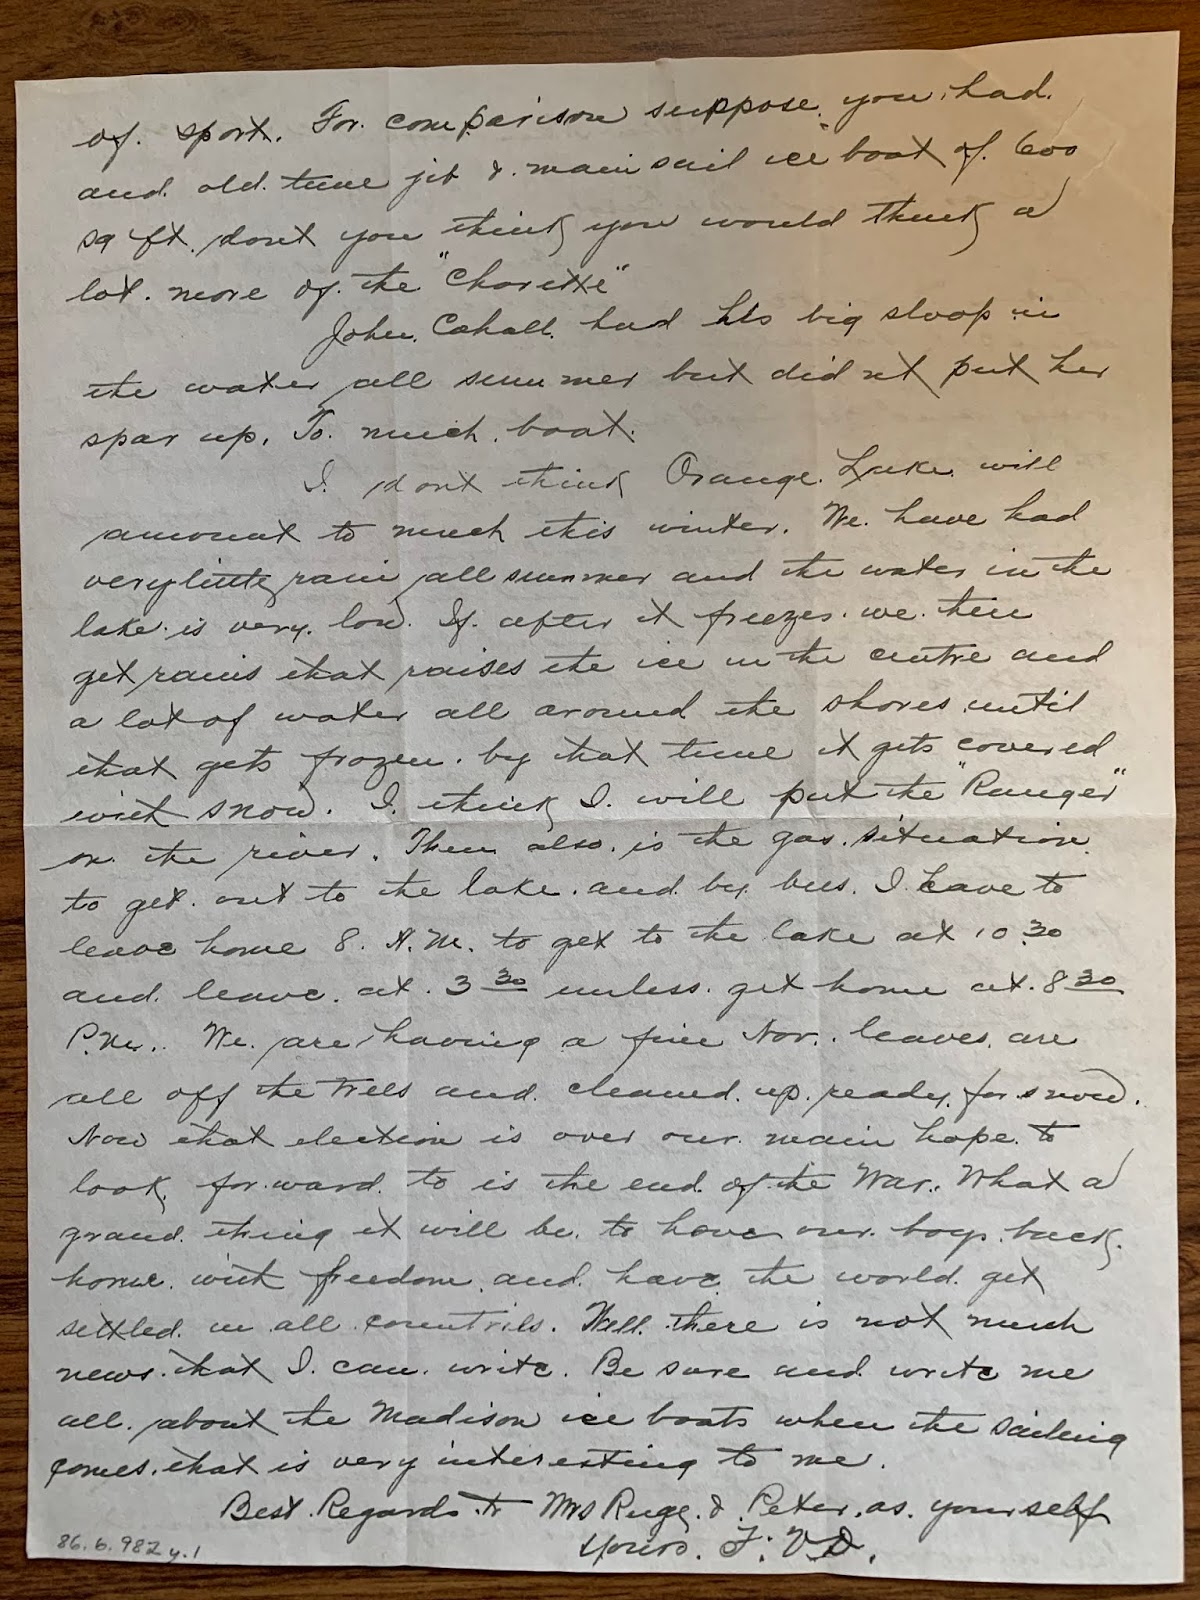 of. sport. For. comparison suppose you had.
and. old. time jib & main sail ice boat of 600
sq ft. dont you think you would think a
lot. more of. the "Charette"
John. Cahall. had his big sloop in
the water all summer but did nt put her
spar up. To. much. boat.
I. dont think Orange. Lake. will
amount to much this winter. We. have had
very little rain all summer and the water in the
lake is very. low. If. after it freezes. we. then
get rains that raises the ice in the centre and
a lot of water all around the shores until
that gets frozen. by that time it gets covered
with snow. I. think I. will put the "Ranger"
on the river. Then also. is the gas. situation
to get. out to the lake. and by bus. I have to
leave home 8. A.M. to get to the lake at 10 30
and. leave. at. 3 30 unless. get home at. 8 30
P.M.. We. are having a fine Nov.. leaves. are
all off the trees and cleaned. up. ready. for snow.
Now that election is over our. main hope. to
look. for.ward. to is the end. of the War.. What a
grand. thing it will be. to have our. boys. back.
home. with freedom and. have. the world. get
settled. in all countries. Well. there is not much
news. that I. can. write. Be sure and write me
all. about the Madison ice boats when the sailing
comes. that is very interesting to me.
Best. Regards to Mrs Rugg. & Peter. as. yourself
Yours. F. V D.
86.6.982 y.1